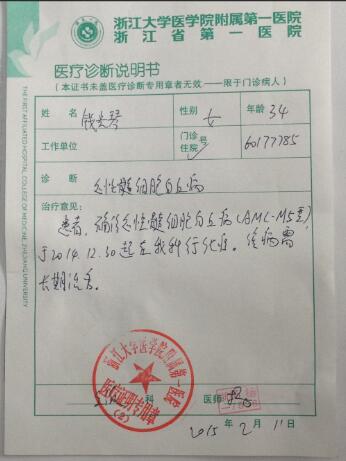 浙江大学医学院附属第一医院
浙江省第一医院
医疗诊断说明书
（本证书未盖医疗诊断专用章者无效——限于门诊病人）
姓名 性别 女 年龄 34
工作单位 门诊 住院 号 60177785
诊断 急性髓细胞白血病
治疗意见：
患者，确诊急性髓细胞白血病（AML-M5型）
于2014.12.30起在我科行化疗。该病需
长期治疗。
科 医师
2015年2月11日
浙江大学医学院附属第一医院
医疗证明专用章
(2)
THE FIRST AFFILIATED HOSPITAL, COLLEGE OF MEDICINE, ZHEJIANG UNIVERSITY